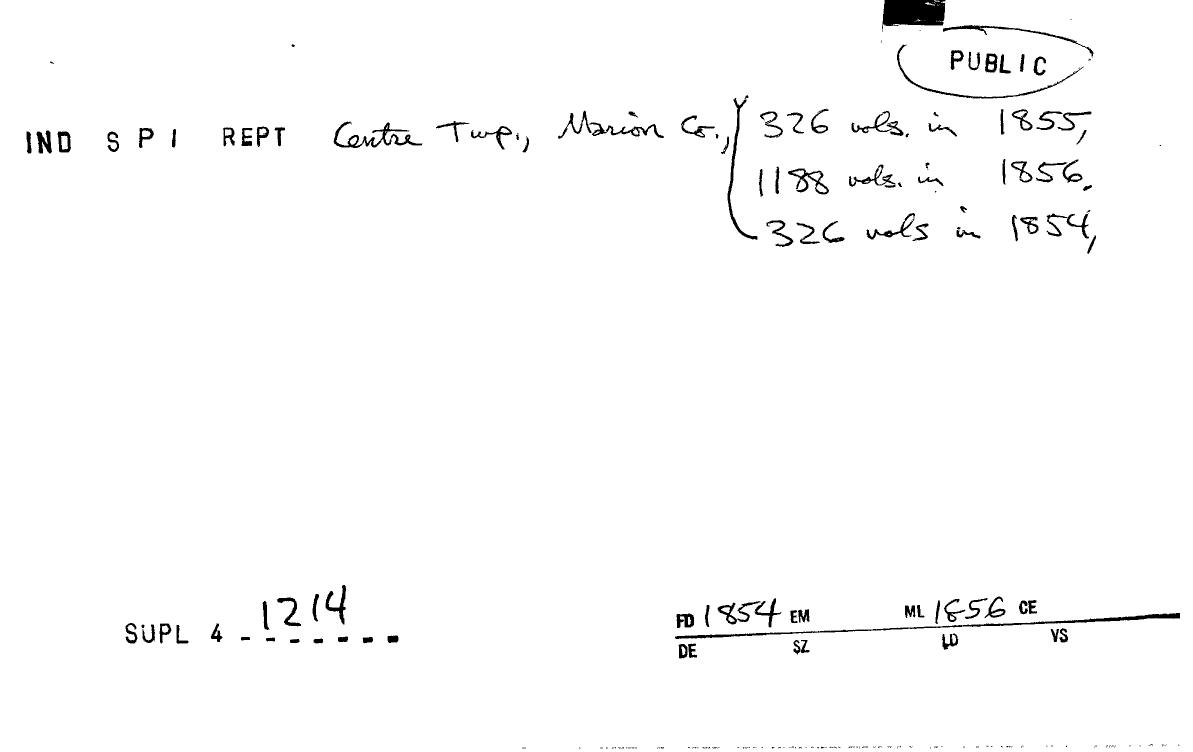 PUBLIC
IND S P I REPT Centre Twp., Marion Co., 326 vols. in 1855,
1188 vols. in 1856.
326 vols in 1854,
SUPL 4 - 1214
FD 1854 EM ML 1856 CE
DE SZ LD VS